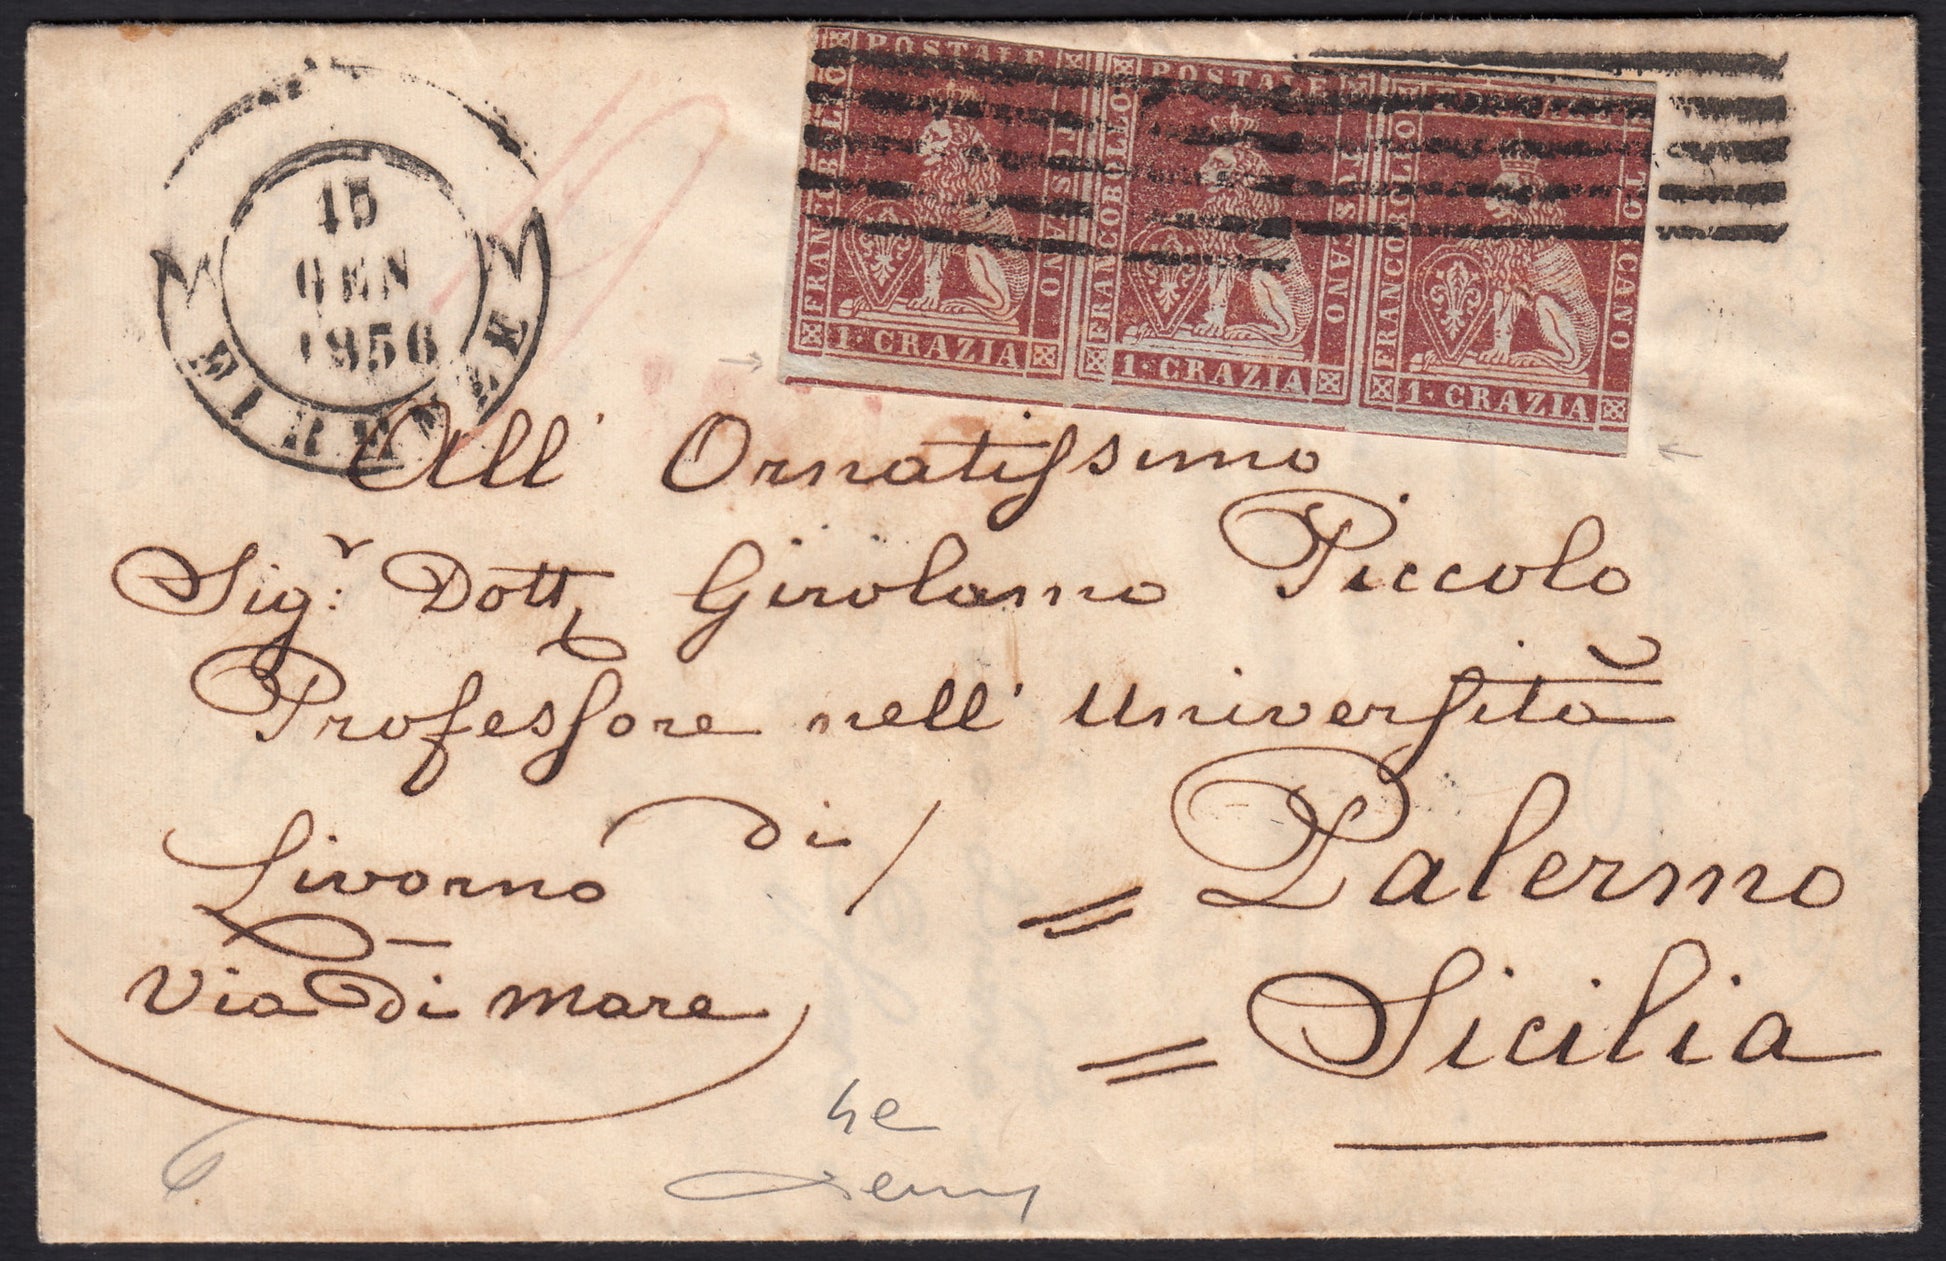 15
GEN
1856
FIRENZE
POSTALE POSTALE
FRANCOBOLLO TOSCANO FRANCOBOLLO TOSCANO FRANCOBOLLO TOSCANO
1·CRAZIA 1·CRAZIA 1·CRAZIA
All' Ornatissimo
Sig.r Dott. Girolamo Piccolo
Professore nell' Università
di
Livorno Palermo
Via di mare Sicilia